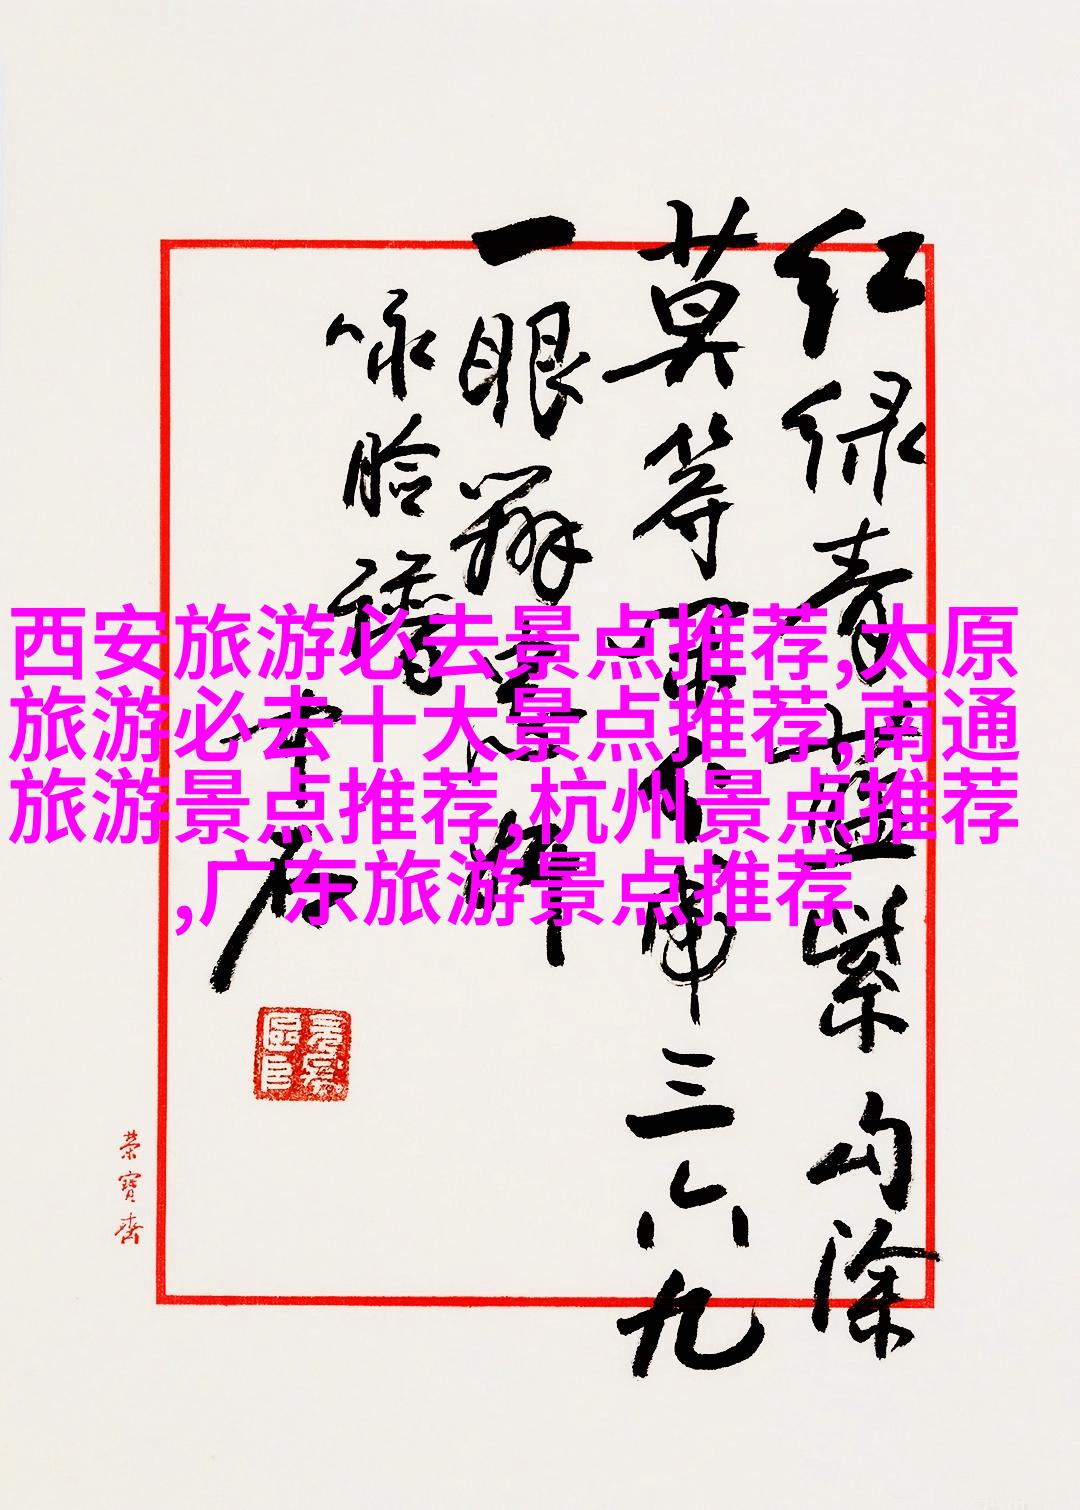 红绿青蓝紫勾涂
莫等三六九
一眼辨
咏脸谱
中石
荣寶齋
西安旅游必去景点推荐,太原
旅游必去十大景点推荐,南通
旅游景点推荐,杭州景点推荐
,广东旅游景点推荐